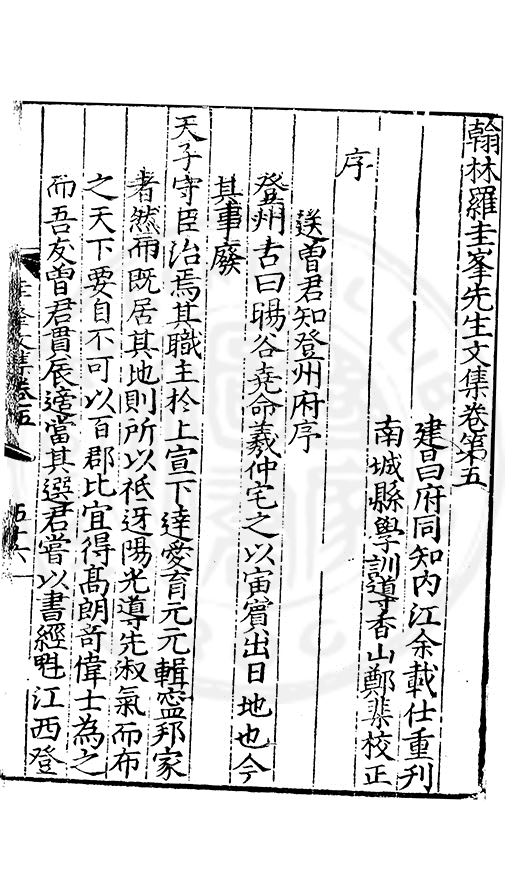 翰林羅圭峯先生文集卷第五
建昌府同知內江余載仕重刋
南城縣學訓導香山鄭棐校正
序
送曽君知登州府序
登州古曰暘谷堯命羲仲宅之以寅賓出日地也今
其事廢
天子守臣治焉其職主扵上宣下達愛育元元輯寧邦家
者然而既居其地則所以祗迓陽光導先淑氣而布
之天下要自不可以百郡比宜得髙朗竒偉士為之
而吾友曽君貫辰適當其選君嘗以書經魁江西登
圭峯文集卷五